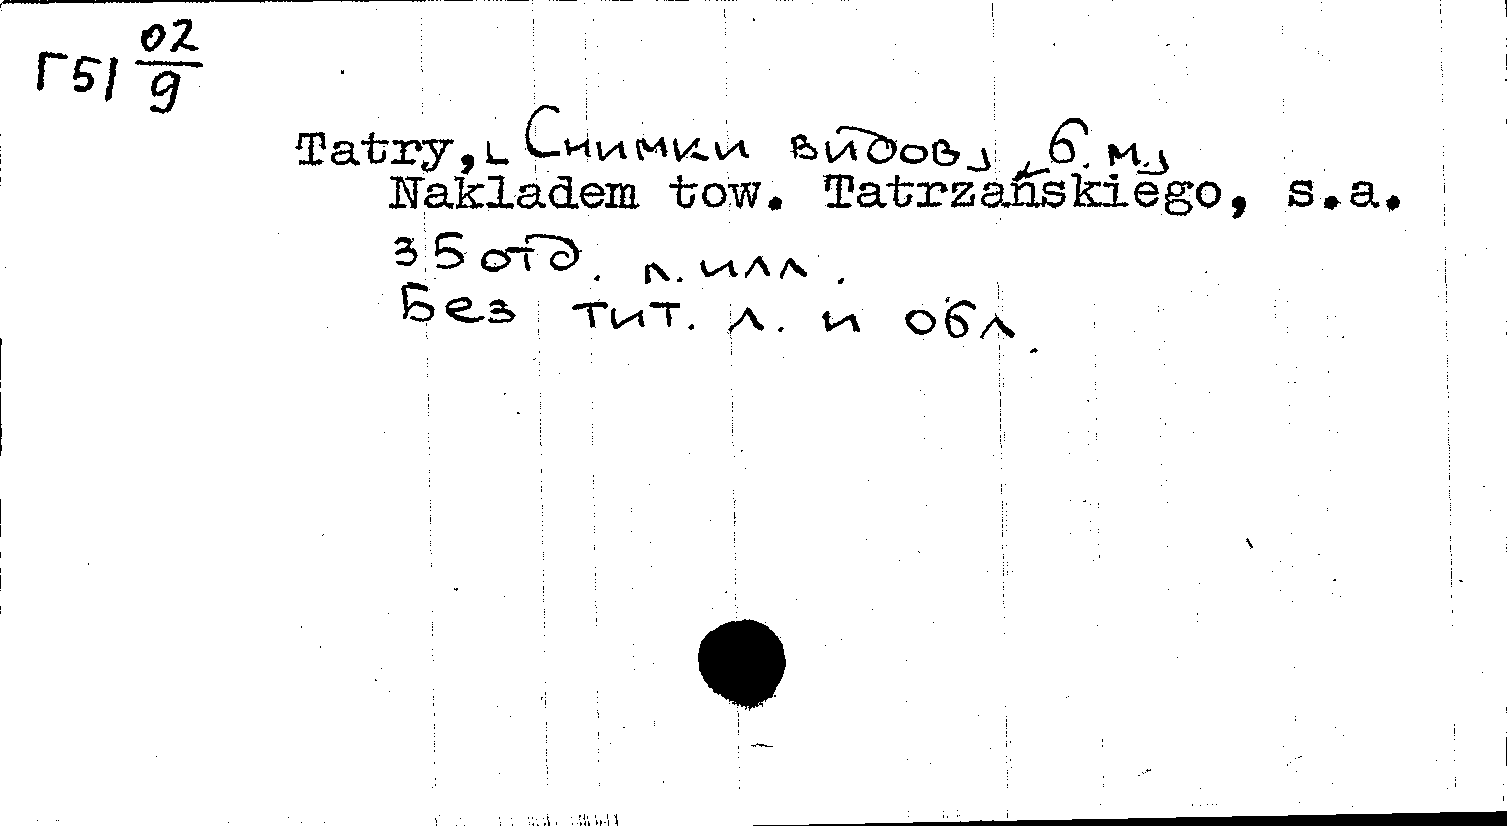 Г51 02/9
Tatry, [Снимки видов], [б.м.],
Nakladem tow. Tatrzańskiego, s.a.
35 отд. л. илл.
Без тит. л. и обл.